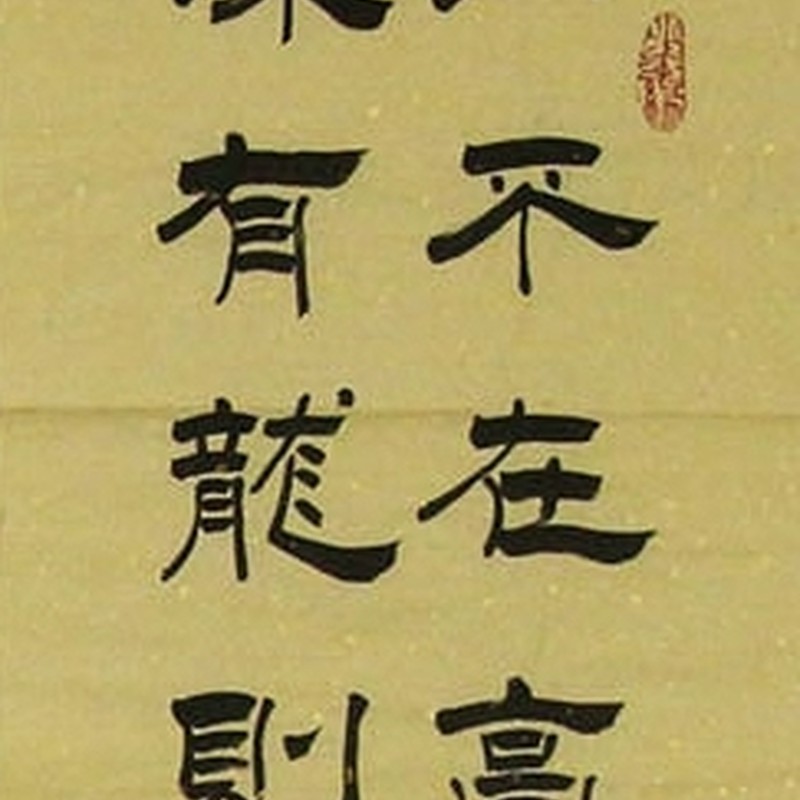 不在高
有龍則